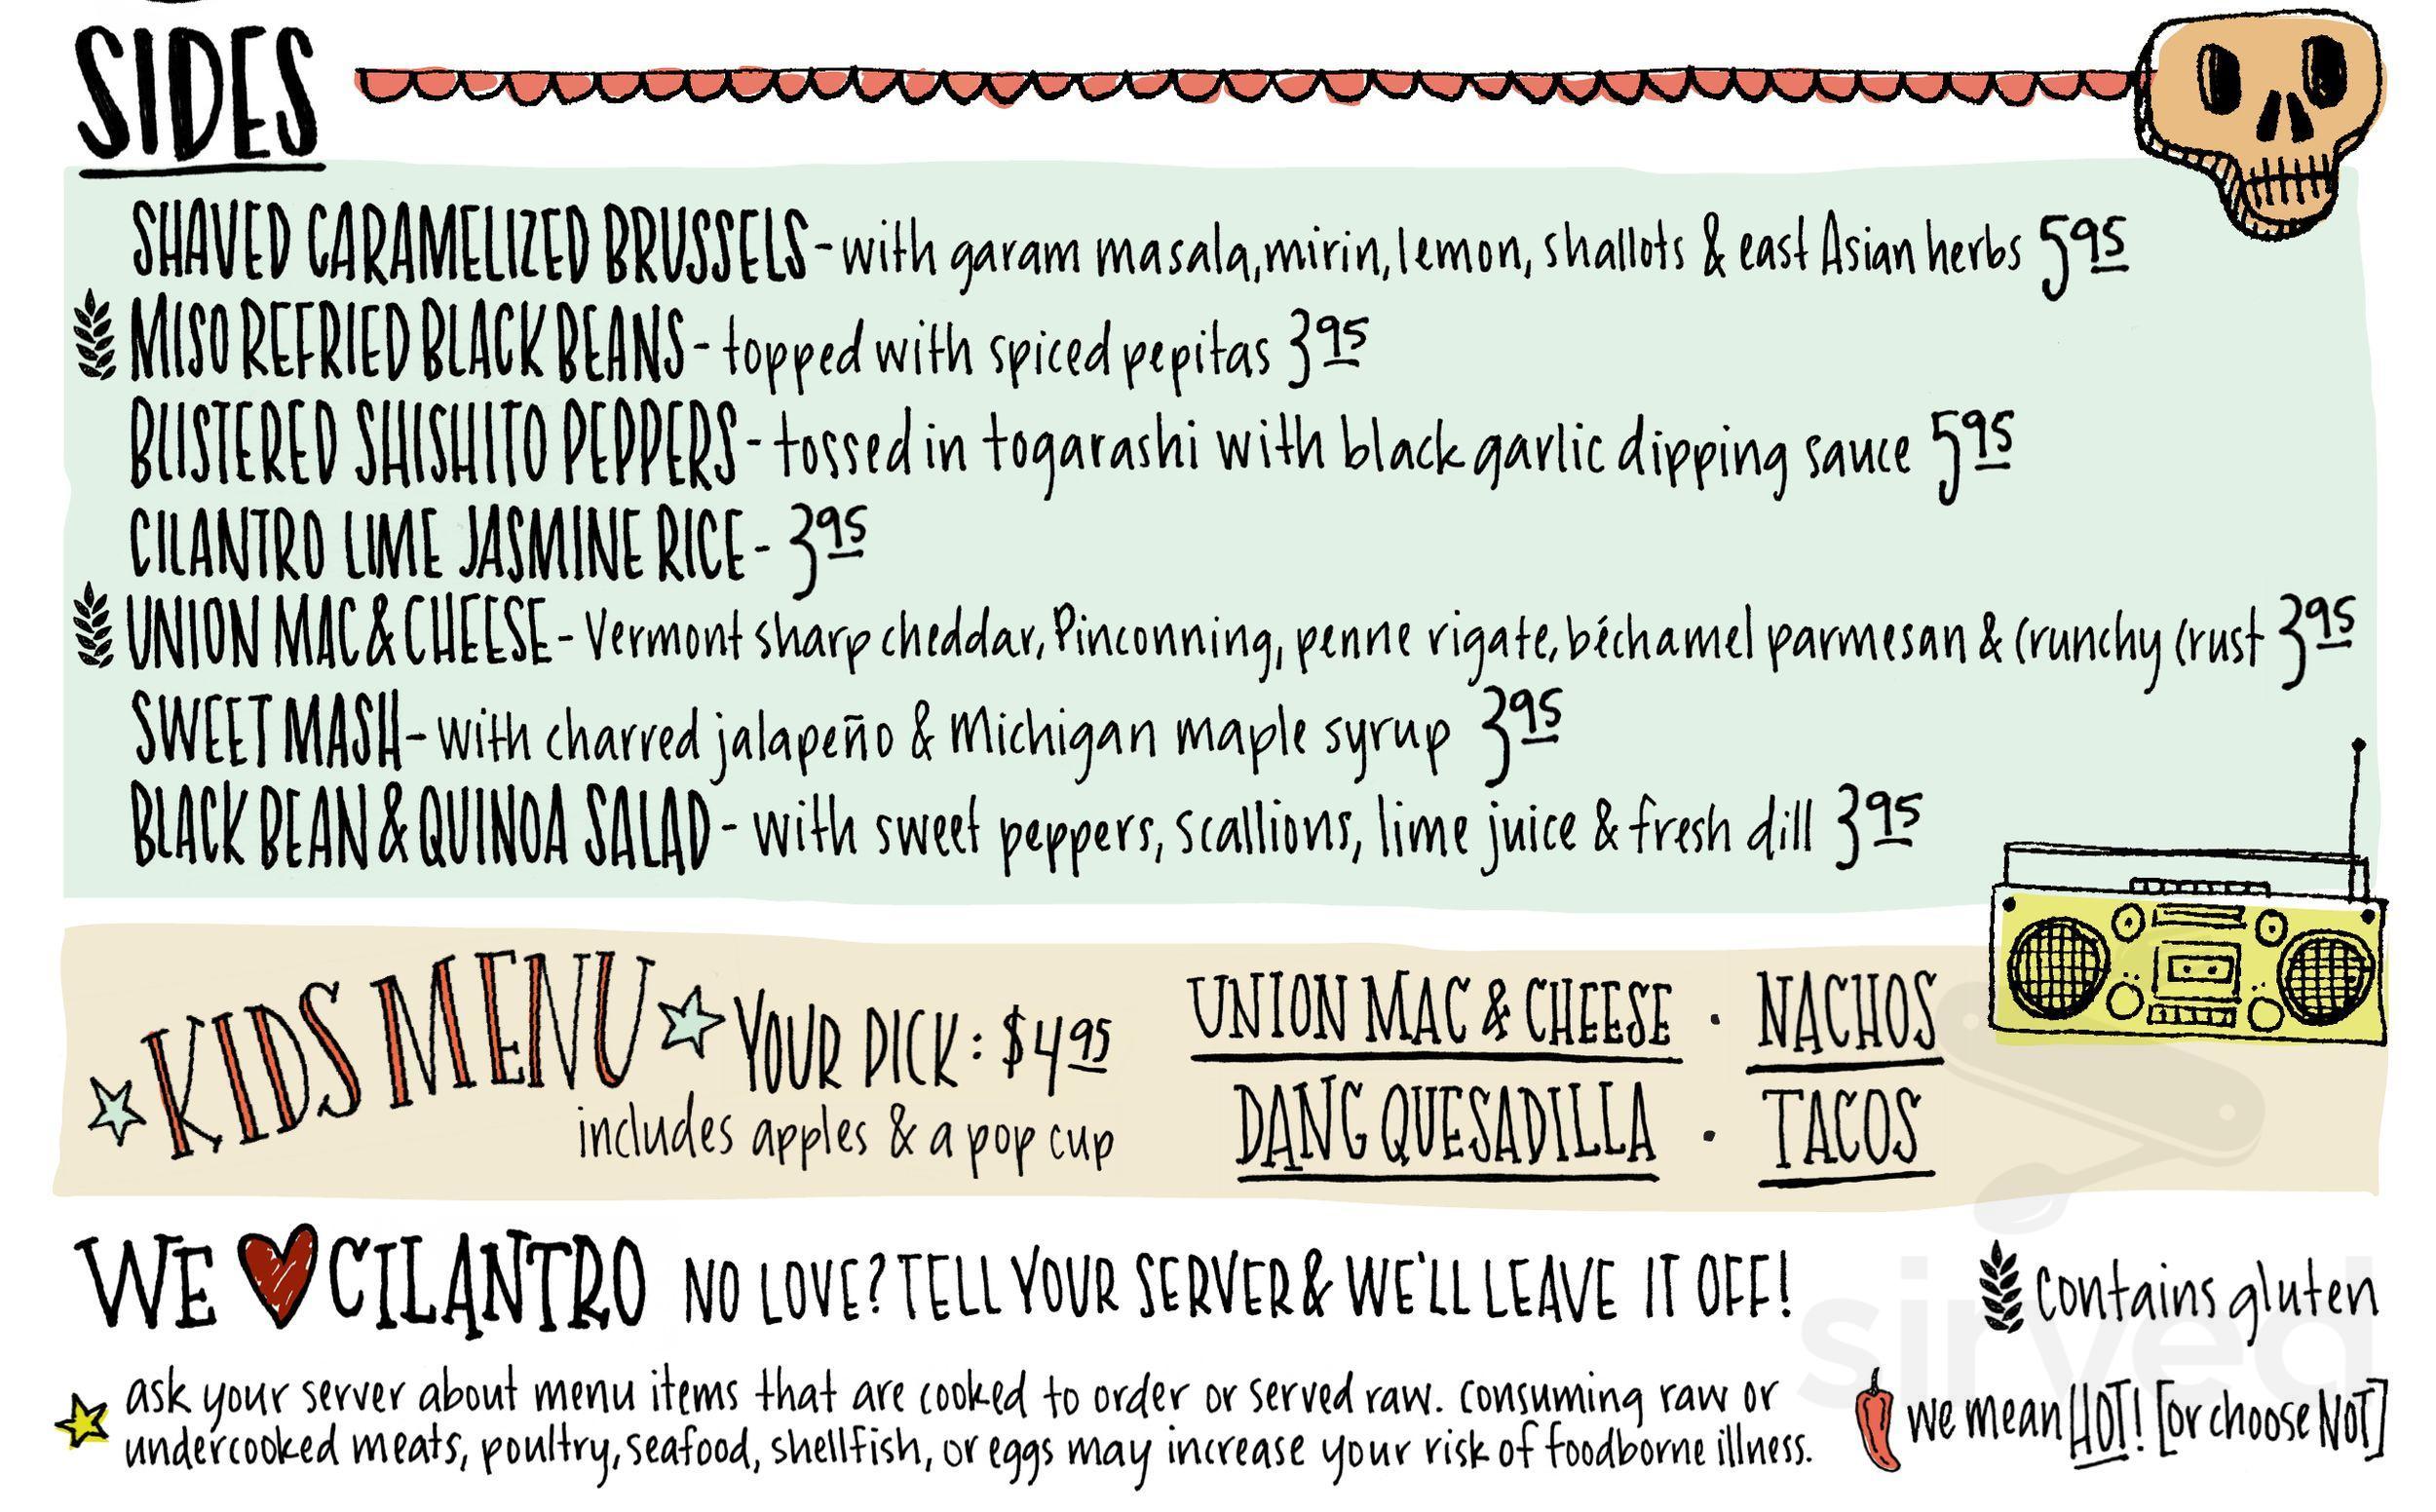 SIDES
SHAVED CARAMELIZED BRUSSELS - with garam masala, mirin, lemon, shallots & east Asian herbs 5 95
MISO REFRIED BLACK BEANS - topped with spiced pepitas 3 95
BLISTERED SHISHITO PEPPERS - tossed in togarashi with black garlic dipping sauce 5 95
CILANTRO LIME JASMINE RICE - 3 95
UNION MAC & CHEESE - Vermont sharp cheddar, Pinconning, penne rigate, béchamel parmesan & crunchy crust 3 95
SWEET MASH - with charred jalapeño & Michigan maple syrup 3 95
BLACK BEAN & QUINOA SALAD - with sweet peppers, scallions, lime juice & fresh dill 3 95
KIDS MENU YOUR PICK: $4 95
includes apples & a pop cup
UNION MAC & CHEESE · NACHOS
DANG QUESADILLA · TACOS
WE CILANTRO NO LOVE? TELL YOUR SERVER & WE'LL LEAVE IT OFF!
contains gluten
sirved
ask your server about menu items that are cooked to order or served raw. consuming raw or
undercooked meats, poultry, seafood, shellfish, or eggs may increase your risk of foodborne illness.
we mean HOT! [or choose NOT]